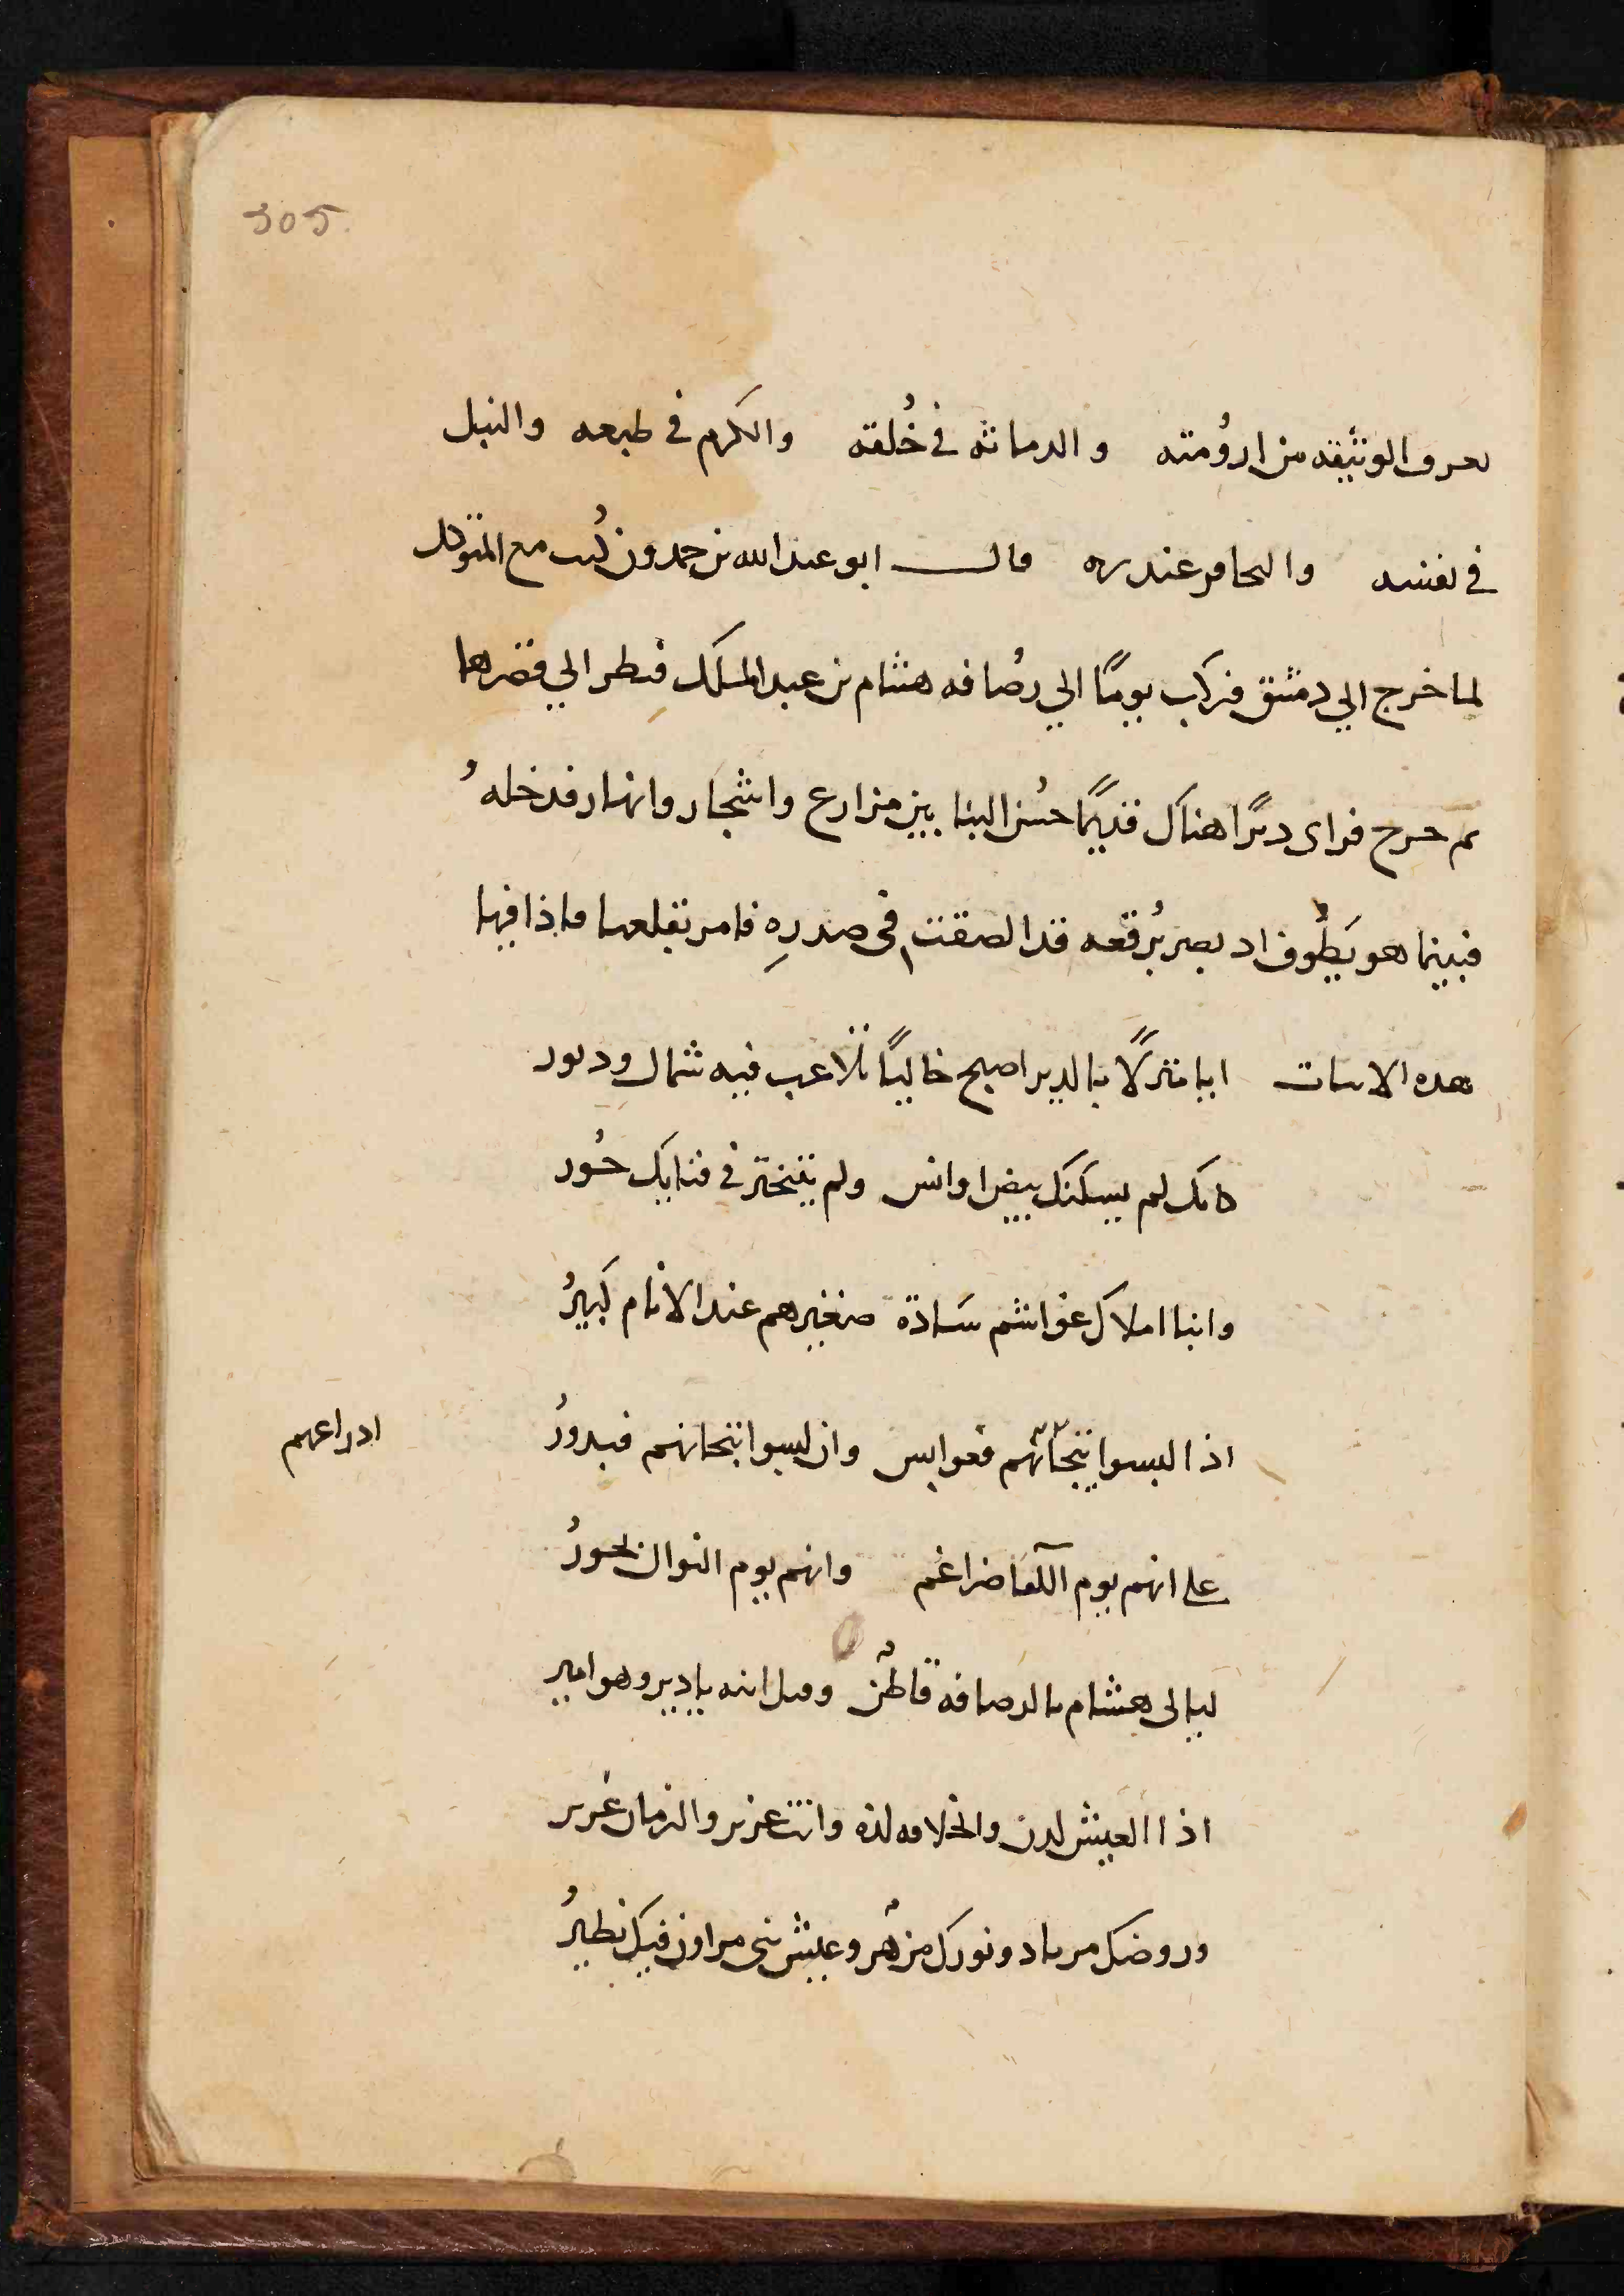 305
بعروق الوثيقه من ارُومته والدماثه في خُلقه والكرم في طبعه والنبل
في نفسه والمحامر عند ربه قال ابو عبد الله بن حمدون كُنت مع المتوكل
لما خرج الي دمشق فركب يومًا الي رُصافه هشام بن عبد الملك فنظر الي قصرها
ثم خرج فراى ديرًا هناك قديمًا حسُن البنا بين مزارع واشجار وانهار فدخلهُ
فبينما هو يَطُوف اذ بصر برُقعه قد الصقت في صدرهِ فامر بقلعها فاذا فيها
هذه الابيات ايا منزلًا بالدير اصبح خاليًا تلاعب فيه شمال ودبور
كانك لم يسكنك بيض اوانس ولم يتبختر في فنايك حُور
وابنا املاك غواشم سَادة صغيرهم عند الانام كبيرُ
اذا لبسوا تيجانهم فعوابس وان لبسوا تيجانهم فبدورُ
ادراعهم
على انهم يوم اللقا ضراغم وانهم يوم النوال بحورُ
ليالى هشام بالرصافه قاطنٌ وفيل ابنه يا دير وهو امير
اذا العيش لدن والخلافه لذه وانت عزير والزمان غرير
وروضك مرتاد ونورك مزهر وعيش بنى مروان فيك نظيرُ